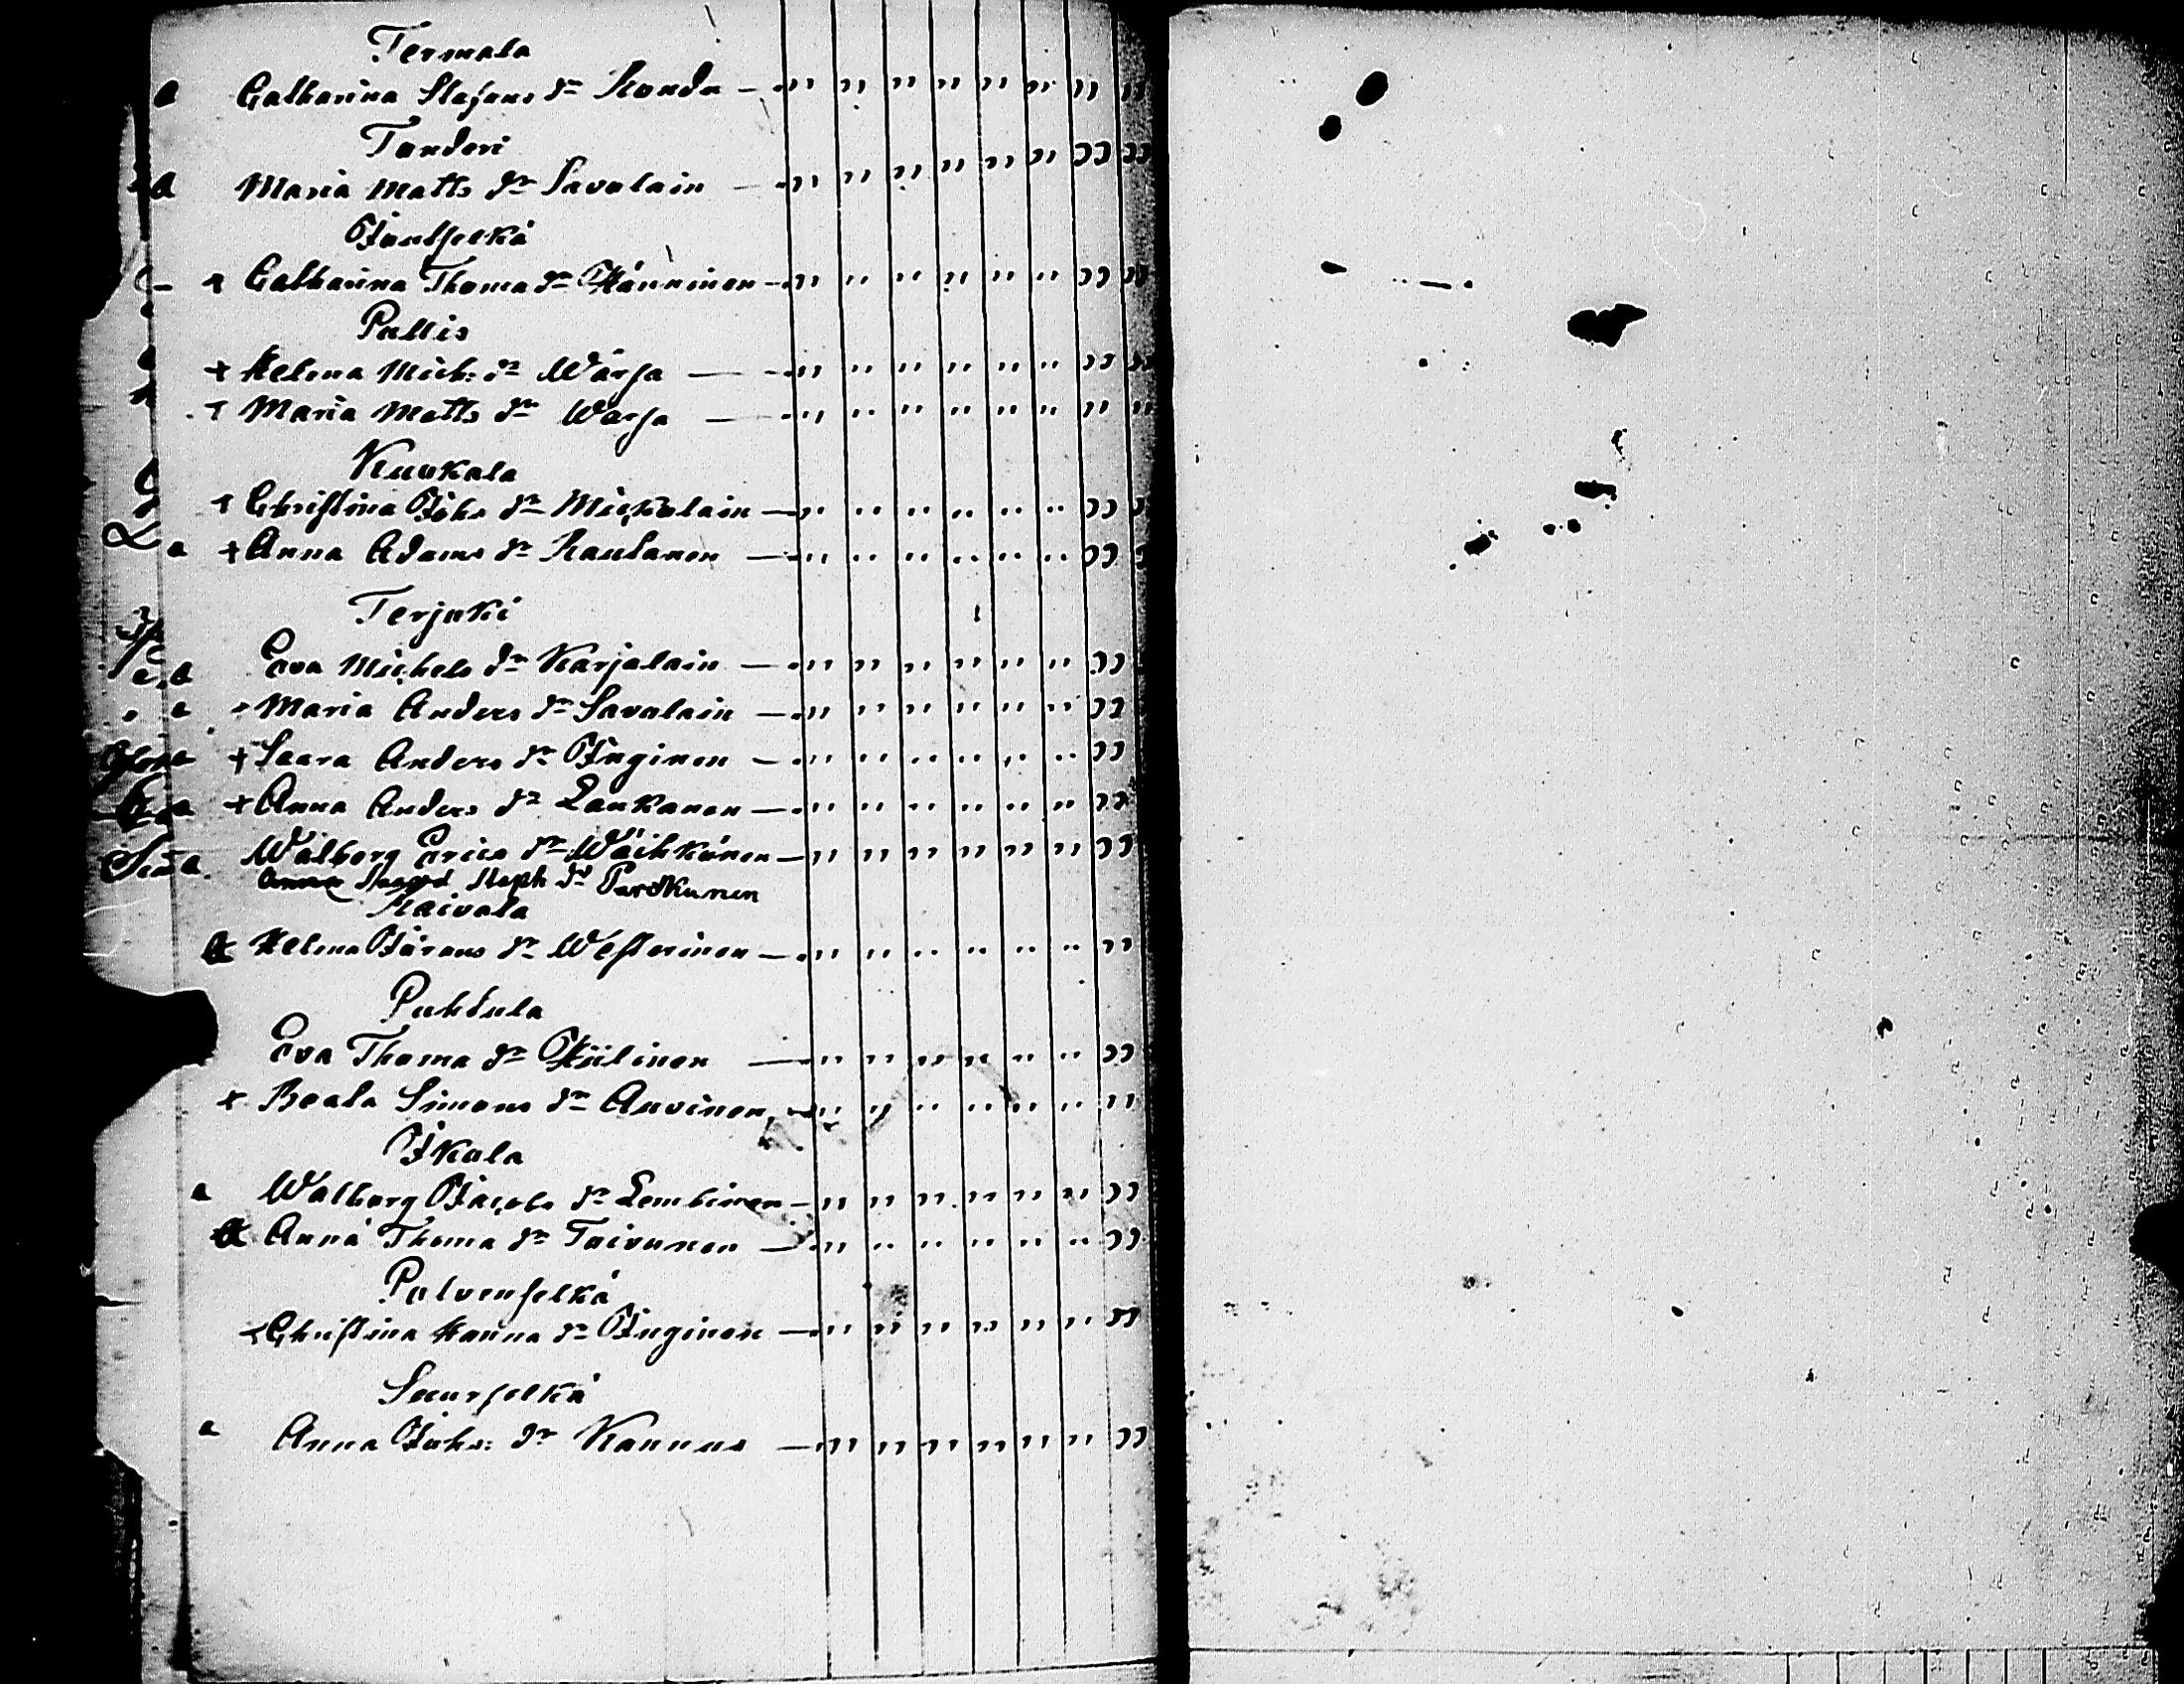 Termala
a Catharina Stafans dr Kondu — " " " " " " " "
Tanderi
a Maria Matts dr Savolain — " " " " " " " "
Jäntselkä
+ Catharina Thoma dr Hänninen — " " " " " " " "
Pallis
+ Helena Mich: dr Wärsa — " " " " " " " "
+ Maria Matts dr Wärsa — " " " " " " " "
Kuokala
+ Christina Johs dr Mickolain — " " " " " " " "
a + Anna Adams dr Rautanen — " " " " " " " "
Terjoki
a Eva Michels dr Karjalain — " " " " " " "
a + Maria Anders dr Savolain — " " " " " " "
+ Saara Anders dr Inginen — " " " " " " "
a + Anna Anders dr Laukanen — " " " " " " "
a. Walborg Erics dr Wäihkönen — " " " " " " "
Anna Steph dr
Haivala
a Helena Jörans dr Westerinen — " " " " " " "
Puhtula
Eva Thoma dr Hiilinen — " " " " " " "
+ Beata Simons dr Auvinen — " " " " " " "
Ikola
a Walborg Jacobs dr Lembinen — " " " " " " "
a Anna Thoma dr Toivonen — " " " " " " "
Polvenselkä
+ Christina Hannu dr Inginen — " " " " " " "
Suurselkä
a Anna Johs: dr Kannus — " " " " " " "